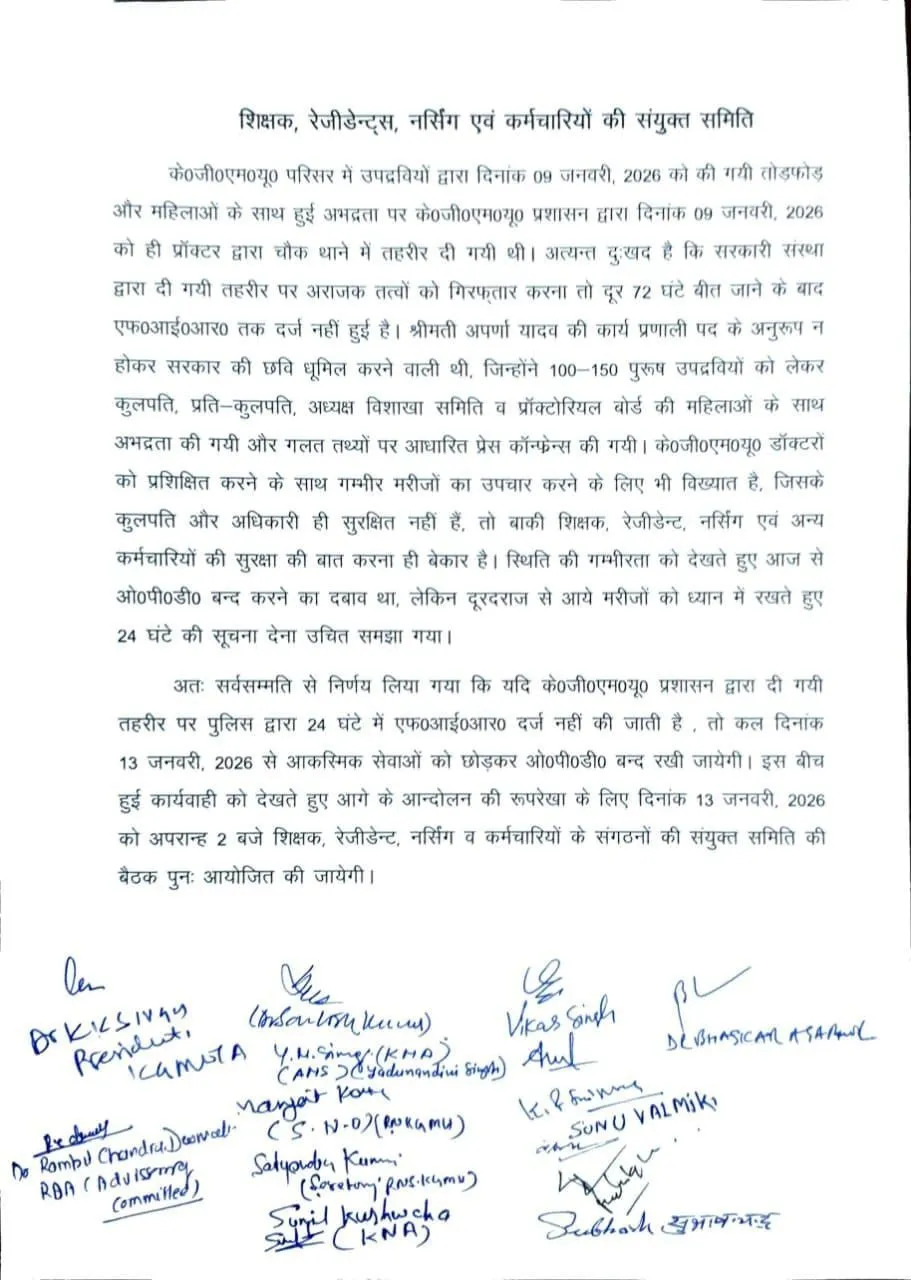 शिक्षक, रेजीडेन्ट्स, नर्सिंग एवं कर्मचारियों की संयुक्त समिति
के0जी0एम0यू0 परिसर में उपद्रवियों द्वारा दिनांक 09 जनवरी, 2026 को की गयी तोड़फोड़
और महिलाओं के साथ हुई अभद्रता पर के0जी0एम0यू0 प्रशासन द्वारा दिनांक 09 जनवरी, 2026
को ही प्रॉक्टर द्वारा चौक थाने में तहरीर दी गयी थी। अत्यन्त दुःखद है कि सरकारी संस्था
द्वारा दी गयी तहरीर पर अराजक तत्वों को गिरफ्तार करना तो दूर 72 घंटे बीत जाने के बाद
एफ0आई0आर0 तक दर्ज नहीं हुई है। श्रीमती अपर्णा यादव की कार्य प्रणाली पद के अनुरूप न
होकर सरकार की छवि धूमिल करने वाली थी, जिन्होंने 100–150 पुरूष उपद्रवियों को लेकर
कुलपति, प्रति–कुलपति, अध्यक्ष विशाखा समिति व प्रॉक्टोरियल बोर्ड की महिलाओं के साथ
अभद्रता की गयी और गलत तथ्यों पर आधारित प्रेस कॉन्फेन्स की गयी। के0जी0एम0यू0 डॉक्टरों
को प्रशिक्षित करने के साथ गम्भीर मरीजों का उपचार करने के लिए भी विख्यात है, जिसके
कुलपति और अधिकारी ही सुरक्षित नहीं हैं, तो बाकी शिक्षक, रेजीडेन्ट, नर्सिंग एवं अन्य
कर्मचारियों की सुरक्षा की बात करना ही बेकार है। स्थिति की गम्भीरता को देखते हुए आज से
ओ0पी0डी0 बन्द करने का दबाव था, लेकिन दूरदराज से आये मरीजों को ध्यान में रखते हुए
24 घंटे की सूचना देना उचित समझा गया।
अतः सर्वसम्मति से निर्णय लिया गया कि यदि के0जी0एम0यू0 प्रशासन द्वारा दी गयी
तहरीर पर पुलिस द्वारा 24 घंटे में एफ0आई0आर0 दर्ज नहीं की जाती है , तो कल दिनांक
13 जनवरी, 2026 से आकस्मिक सेवाओं को छोड़कर ओ0पी0डी0 बन्द रखी जायेगी। इस बीच
हुई कार्यवाही को देखते हुए आगे के आन्दोलन की रूपरेखा के लिए दिनांक 13 जनवरी, 2026
को अपरान्ह 2 बजे शिक्षक, रेजीडेन्ट, नर्सिंग व कर्मचारियों के संगठनों की संयुक्त समिति की
बैठक पुनः आयोजित की जायेगी।
Dr K.K. Singh
President,
KGMUTA
(Dr Santosh Kumar)
Vikas Singh
DR BHASKAR AGARWAL
Y.N. Singh (KNA)
(ANS) (Yadunandini Singh)
Manjeet Kaur
(S.N.O) (RNS KGMU)
SONU VALMIKI
RDA (Advisory
Committed)
Satyendra Kumar
(Secretary RNS. KGMU)
Sunil Kushwaha
(KNA)
Subhash सुभाष चन्द्र